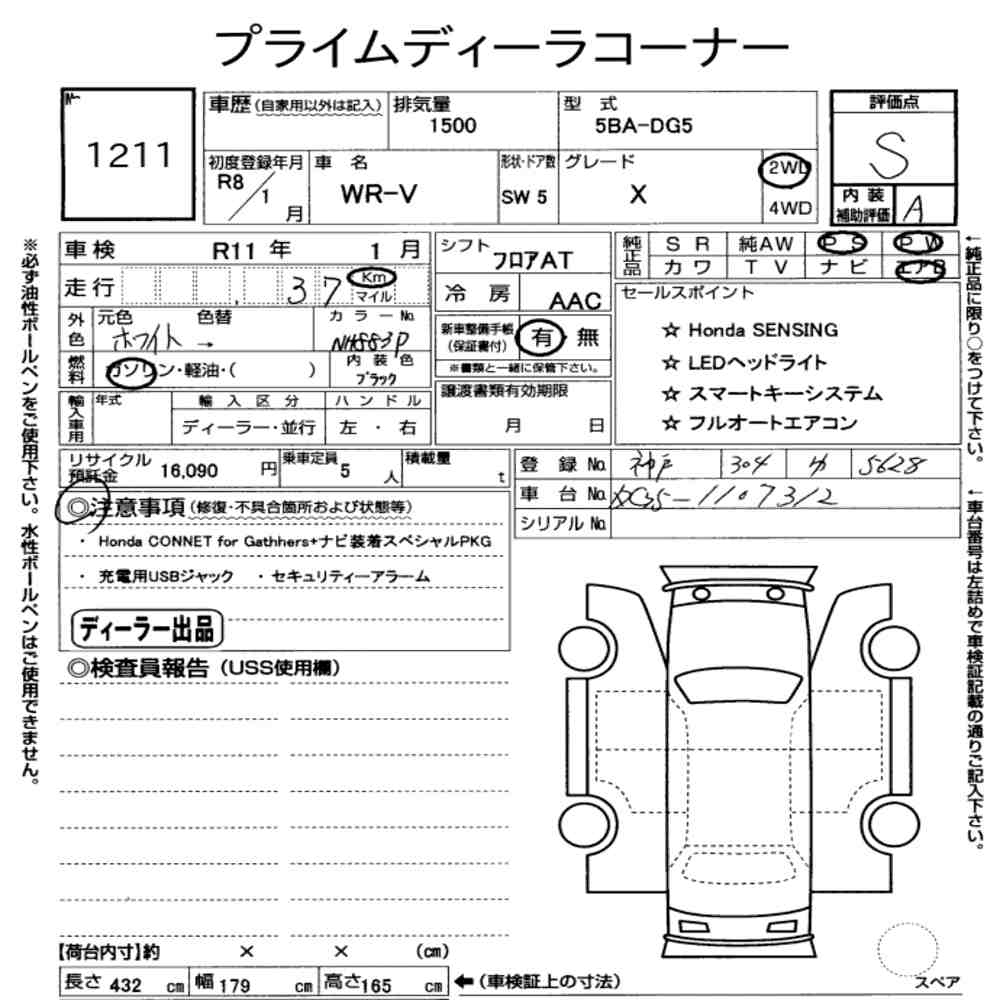 プライムディーラコーナー
№
1211
車歴(自家用以外は記入)
排気量
1500
型 式
5BA-DG5
評価点
S
初度登録年月
R8/1月
車 名
WR-V
形状・ドア数
SW 5
グレード
X
2WD
4WD
内装
補助評価
A
車検 R11 年 1 月
シフト
フロアAT
純正品
SR 純AW PS PW
カワ TV ナビ エアB
走行 37 Km
マイル
冷 房
AAC
セールスポイント
☆ Honda SENSING
☆ LEDヘッドライト
☆ スマートキーシステム
☆ フルオートエアコン
外色
元色 色替
ホワイト →
カラーNo.
NH883P
新車整備手帳
(保証書付)
有・無
※書類と一緒に保管下さい。
燃料
ガソリン・軽油・( )
内装色
ブラック
譲渡書類有効期限
月 日
輸入車用
年式
輸入区分
ディーラー・並行
ハンドル
左・右
リサイクル
預託金
16,090 円
乗車定員
5 人
積載量
t
登 録 No. 神戸 304 ゆ 5628
車 台 No.
シリアル No.
◎注意事項(修復・不具合箇所および状態等)
・ Honda CONNET for Gathhers+ナビ装着スペシャルPKG
・ 充電用USBジャック ・セキュリティーアラーム
ディーラー出品
◎検査員報告(USS使用欄)
【荷台内寸】約 × × (cm)
長さ 432 cm 幅 179 cm 高さ165 cm ←(車検証上の寸法)
スペア
※必ず油性ボールペンをご使用下さい。水性ボールペンはご使用できません。
←純正品に限り○をつけて下さい。
←車台番号は左詰めで車検証記載の通りご記入下さい。